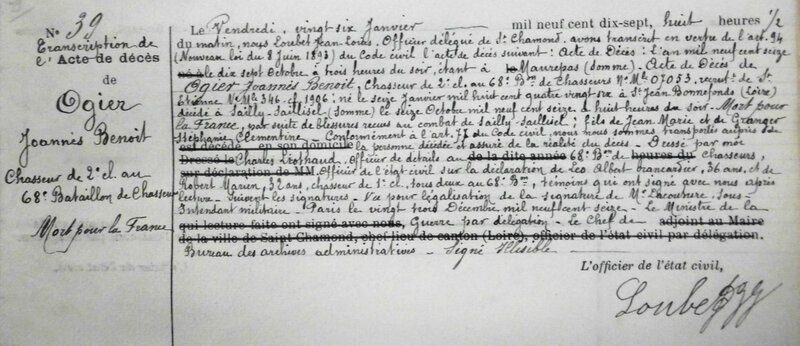 N° 39
Transcription de
l'Acte de décès
de
Ogier
Joannès Benoit
Chasseur de 2e cl. au
68e Bataillon de Chasseurs
Mort pour la France
Le Vendredi, vingt six Janvier mil neuf cent dix-sept, huit heures 1/2
du matin, nous Loubet Jean Louis, Officier délégué de St Chamond, avons transcrit en vertu de l'art. 94
(Nouveau loi du 8 Juin 1893) du Code civil l'acte de décès suivant : Acte de Décès : L'an mil neuf cent seize
né à le dix sept Octobre à trois heures du soir, étant à le Maurepas (Somme) - Acte de Décès de
Ogier Joannès Benoit, Chasseur de 2e cl. au 68e Bon de Chasseurs No Mle 07053, recrutt de St
Etienne No Mle 346, cl. 1906; né le seize Janvier mil huit cent quatre vingt six à St Jean Bonnefonds (Loire)
décédé à Sailly-Saillisel (Somme) le seize Octobre mil neuf cent seize, à huit heures du soir - Mort pour
la France, par suite de blessures reçues au combat de Sailly-Saillisel; fils de Jean Marie et de Granger
Stéphanie Clémentine - Conformément à l'art. 77 du Code civil, nous nous sommes transportés auprès de
est décédé en son domicile la personne décédée et assuré de la réalité du décès - Dressé par moi
Dressé le Charles Officier de détails au de la dite année 68e Bon de heures du Chasseurs,
sur déclaration de MM. Officier de l'état civil sur la déclaration de Léo Albert brancardier, 36 ans, et de
Robert Marien, 32 ans, chasseur de 1e cl., tous deux au 68e Bon, témoins qui ont signé avec nous après
lecture - Suivent les signatures - Vu pour légalisation de la signature de Mr Lacouture Sous-
Intendant militaire - Paris le vingt trois Décembre mil neuf cent seize - Le Ministre de la
qui lecture faite ont signé avec nous, Guerre par délégation - Le Chef de adjoint au Maire
de la ville de Saint Chamond, chef-lieu de canton (Loire), officier de l'état civil par délégation.
Bureau des archives administratives - Signé Illisible
L'officier de l'état civil,
Loubet